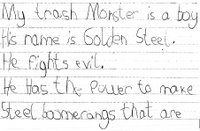 My trash Monster is a boy
His name is Golden Steel.
He Fights evil.
He Has the Power to make
Steel boomerangs that are